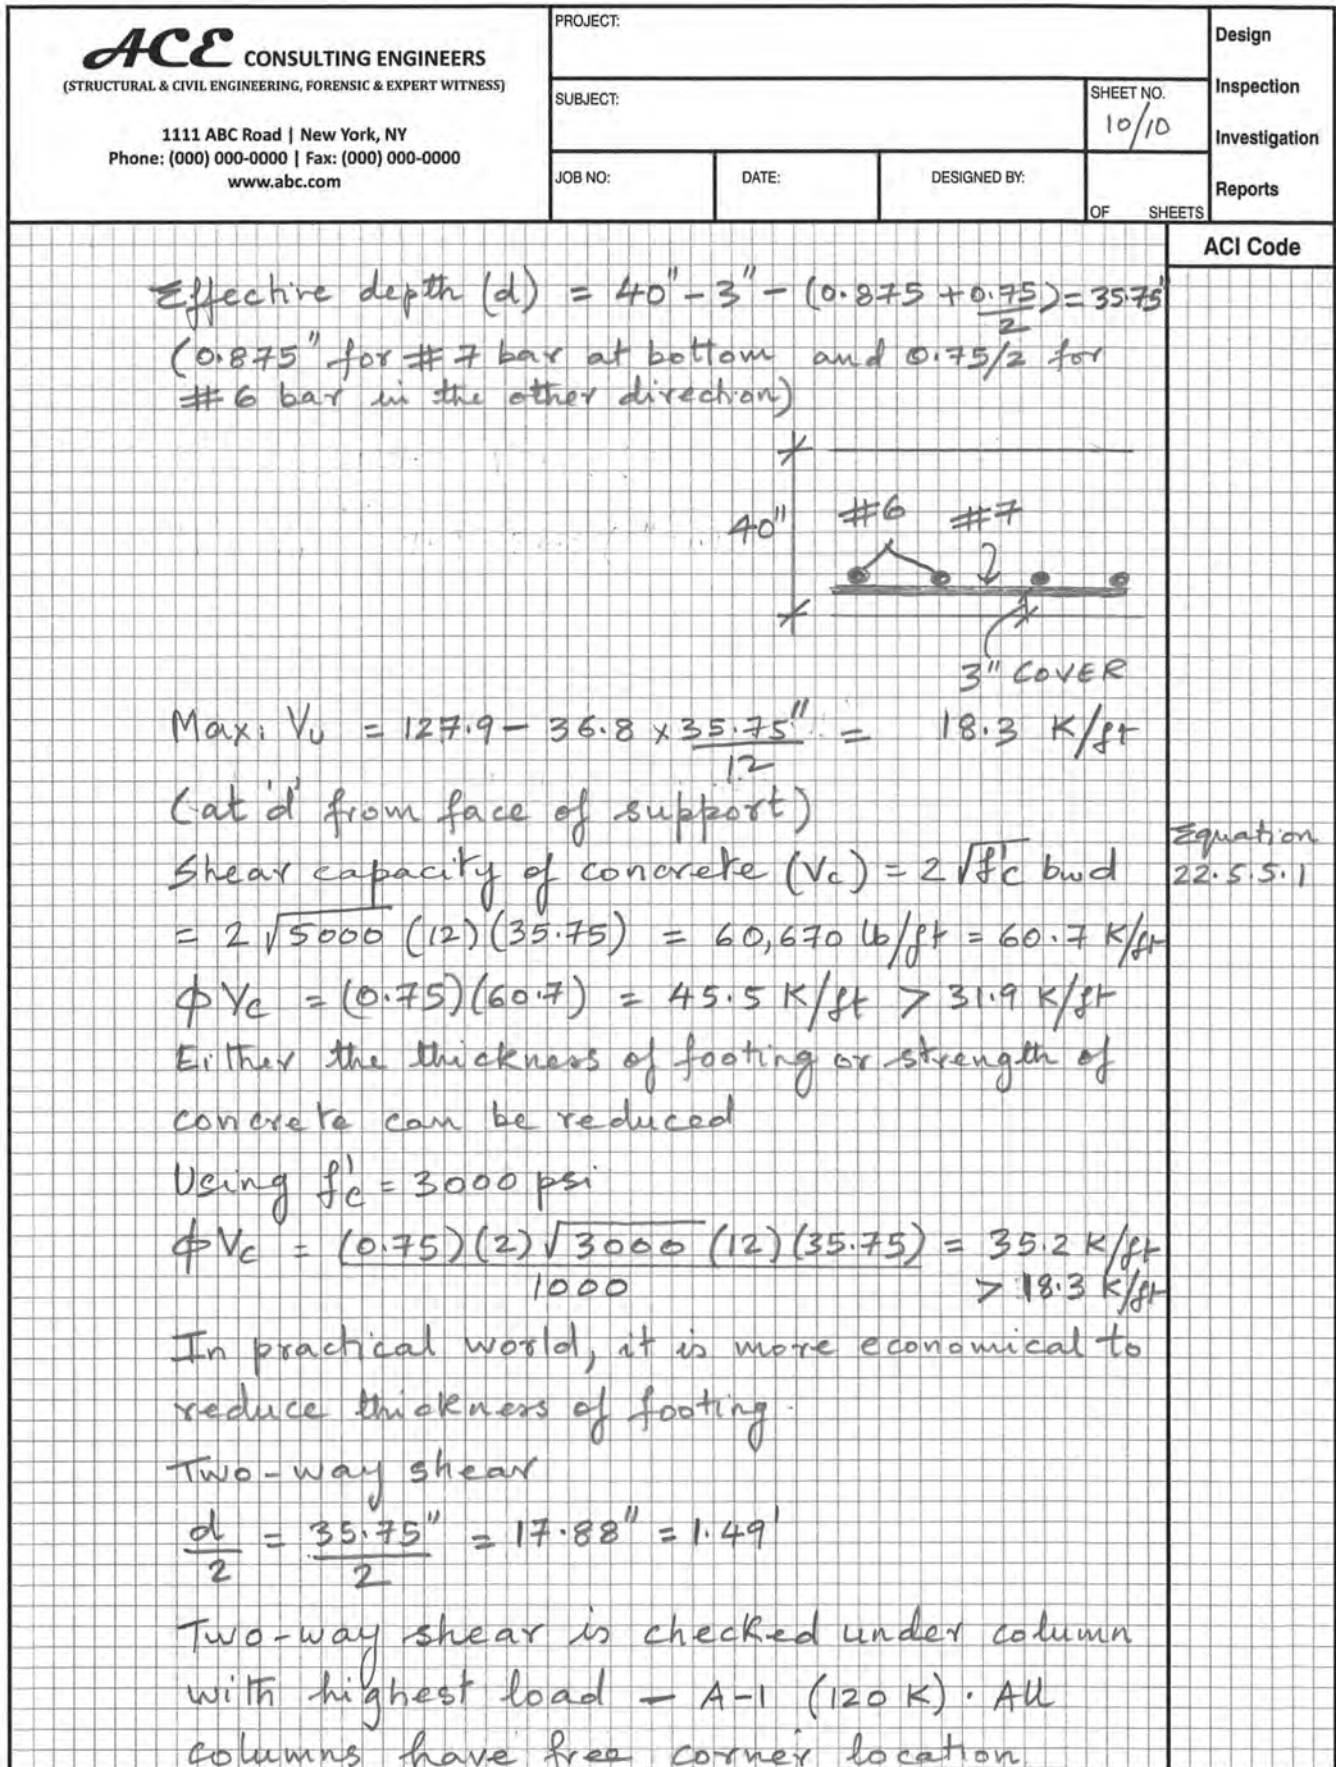 ACE CONSULTING ENGINEERS
(STRUCTURAL & CIVIL ENGINEERING, FORENSIC & EXPERT WITNESS)
1111 ABC Road | New York, NY
Phone: (000) 000-0000 | Fax: (000) 000-0000
www.abc.com
PROJECT:
SUBJECT:
SHEET NO.
10/10
JOB NO:
DATE:
DESIGNED BY:
OF SHEETS
Design
Inspection
Investigation
Reports
ACI Code
Effective depth (d) = 40" - 3" - (0.875 + 0.75/2) = 35.75"
(0.875" for #7 bar at bottom and 0.75/2 for
#6 bar in the other direction)
40" #6 #7
3" COVER
Max. Vu = 127.9 - 36.8 x 35.75"/12 = 18.3 K/ft
(at 'd' from face of support)
Shear capacity of concrete (Vc) = 2 √f'c bwd
Equation
22.5.5.1
= 2 √5000 (12)(35.75) = 60,670 lb/ft = 60.7 K/ft
ϕVc = (0.75)(60.7) = 45.5 K/ft > 31.9 K/ft
Either the thickness of footing or strength of
concrete can be reduced
Using f'c = 3000 psi
ϕVc = (0.75)(2)√3000 (12)(35.75)/1000 = 35.2 K/ft
> 18.3 K/ft
In practical world, it is more economical to
reduce thickness of footing.
Two-way shear
d/2 = 35.75"/2 = 17.88" = 1.49'
Two-way shear is checked under column
with highest load - A-1 (120 K). All
columns have free corner location